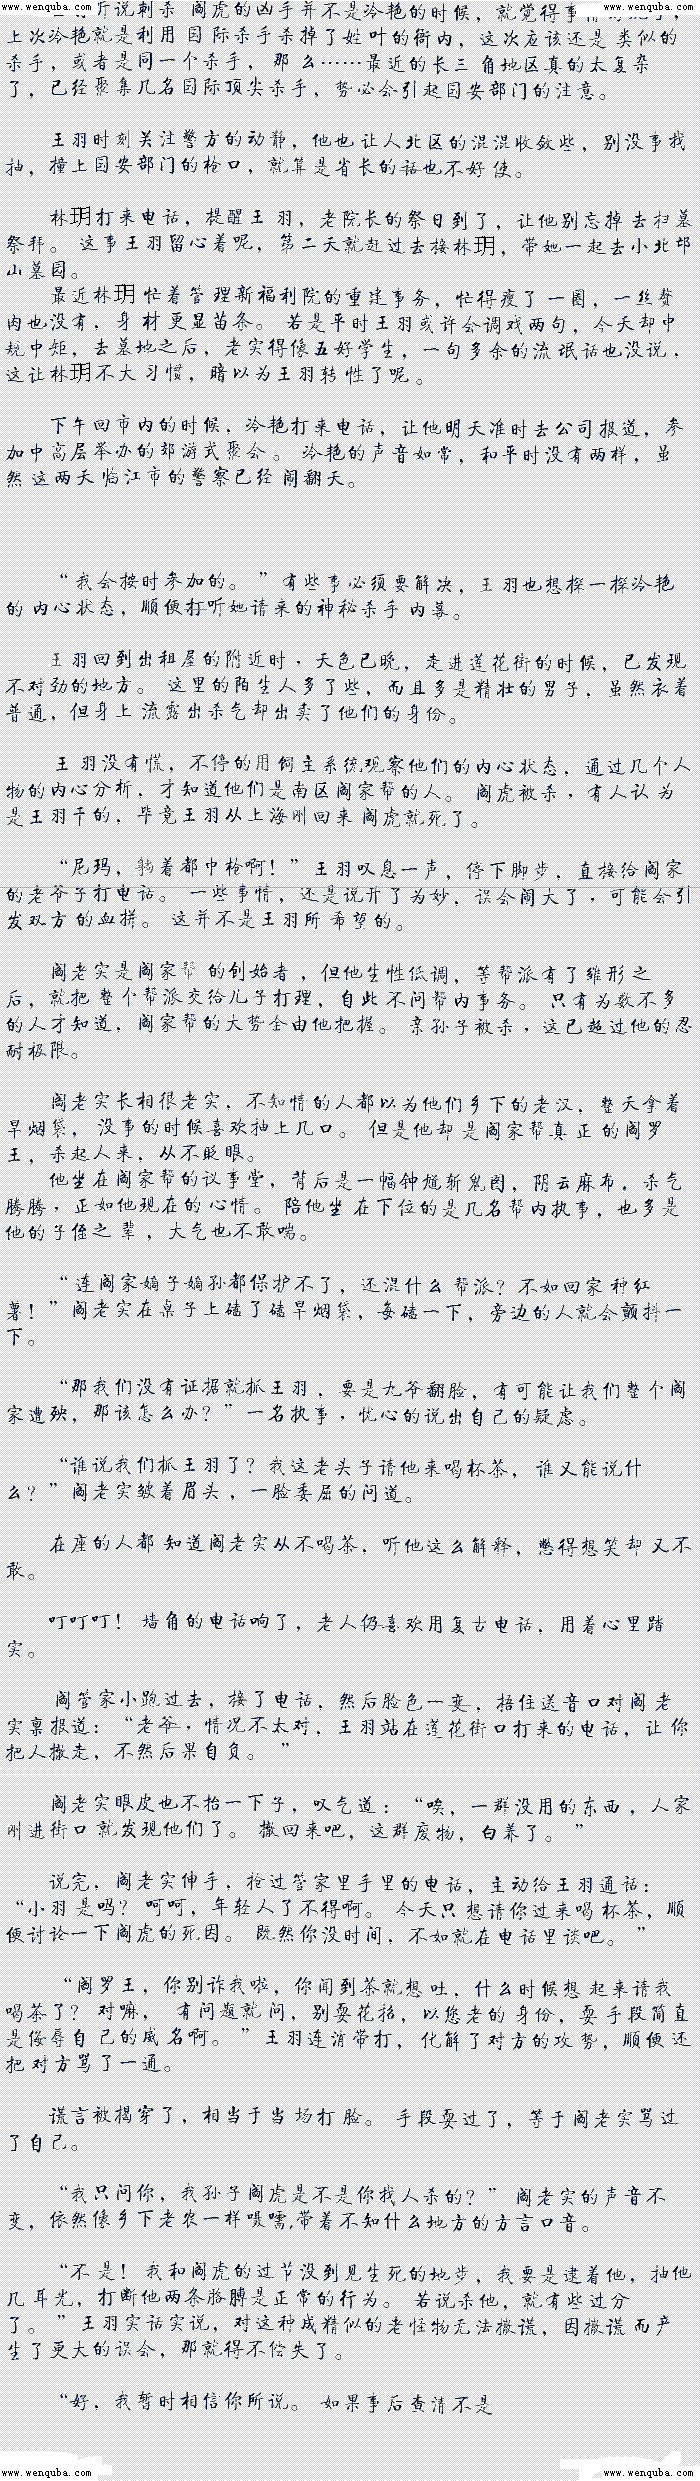 www.wenquba.com www.wenquba.com
王羽听说刺杀 阎虎的凶手并不是冷艳的时候，就觉得事情
上次冷艳就是利用国际杀手杀掉了姓叶的衙内，这次应该还是 类似的
杀手，或者是同一个杀手，那么……最近的长三角地区真的太复杂
了，已经聚集几名国际顶尖杀手，势必会引起国安部门的注意。
王羽时刻关注警方的动静，他也让人北区的混混收敛些，别没事找
抽，撞上国安部门的枪口，就算是省长的话也不好使。
林玥打来电话，提醒王羽，老院长的祭日到了，让他别忘掉去扫墓
祭拜。 这事王羽留心着呢，第二天就赶过去接林玥，带她一起去小北邙
山墓园。
最近林玥忙着管理新福利院的重建事务，忙得瘦了一圈，一丝赘
肉也没有，身材更显苗条。 若是平时王羽或许会调戏两句，今天却中
规中矩，去墓地之后，老实得像五好学生，一句多余的流氓话也没说，
这让林玥不大习惯，暗以为王羽转性了呢。
下午回市内的时候，冷艳打来电话，让他明天准时去公司报道，参
加中高层举办的郊游式聚会。 冷艳的声音如常，和平时没有两样，虽
然这两天临江市的警察已经闹翻天。
“我会按时参加的。 ”有些事必须要解决，王羽也想探一探冷艳
的内心状态，顺便打听她请来的神秘杀手内幕。
王羽回到出租屋的附近时，天色已晚，走进莲花街的时候，已发现
不对劲的地方。 这里的陌生人多了些，而且多是精壮的男子，虽然衣着
普通，但身上流露出杀气却出卖了他们的身份。
王羽没有慌，不停的用饲主系统观察他们的内心状态，通过几个人
物的内心分析，才知道他们是南区阎家帮的人。 阎虎被杀，有人认为
是王羽干的，毕竟王羽从上海刚回来阎虎就死了。
“尼玛，躺着都中枪啊！”王羽叹息一声，停下脚步，直接给阎家
的老爷子打电话。 一些事情，还是说开了为妙，误会闹大了，可能会引
发双方的血拼。 这并不是王羽所希望的。
阎老实是阎家帮 的创始者，但他生性低调，等帮派有了雏形之
后，就把整个帮派交给儿子打理，自此不问帮内事务。 只有为数不多
的人才知道，阎家帮的大势全由他把握。 亲孙子被杀，这已超过他的忍
耐极限。
阎老实长相很老实，不知情的人都以为他们乡下的老汉，整天拿着
旱烟袋，没事的时候喜欢抽上几口。 但是他却是阎家帮真正的阎罗
王，杀起人来，从不眨眼。
他坐在阎家帮的议事堂，背后是一幅钟馗斩鬼图，阴云麻布，杀气
腾腾，正如他现在的心情。 陪他坐在下位的是几名帮内执事，也多是
他的子侄之辈，大气也不敢喘。
“连阎家嫡子嫡孙都保护不了，还混什么帮派？不如回家种红
薯！”阎老实在桌子上磕了磕旱烟袋，每磕一下，旁边的人就会颤抖一
下。
“那我们没有证据就抓王羽，要是九爷翻脸，有可能让我们整个阎
家遭殃，那该怎么办？”一名执事，忧心的说出自己的疑虑。
“谁说我们抓王羽了？我这老头子请他来喝杯茶，谁又能说什
么？”阎老实皱着眉头，一脸委屈的问道。
在座的人都知道阎老实从不喝茶，听他这么解释，憋得想笑却又不
敢。
叮叮叮！ 墙角的电话响了，老人仍喜欢用复古电话，用着心里踏
实。
阎管家小跑过去，接了电话，然后脸色一变，捂住送音口对阎老
实禀报道：“老爷，情况不太对，王羽站在莲花街口打来的电话，让你
把人撤走，不然后果自负。 ”
阎老实眼皮也不抬一下子，叹气道：“唉，一群没用的东西，人家
刚进街口就发现他们了。 撤回来吧，这群废物，白养了。”
说完，阎老实伸手，抢过管家里手里的电话，主动给王羽通话：
“小羽是吗？ 呵呵，年轻人了不得啊。 今天只想请你过来喝杯茶，顺
便讨论一下阎虎的死因。 既然你没时间，不如就在电话里谈吧。 ”
“阎罗王，你别诈我啦，你闻到茶就想吐，什么时候想起来请我
喝茶了？对嘛， 有问题就问，别耍花招，以您老的身份，耍手段简直
是侮辱自己的威名啊。 ”王羽连消带打，化解了对方的攻势，顺便还
把对方骂了一通。
谎言被揭穿了，相当于当场打脸。 手段耍过了，等于阎老实骂过
了自己。
“我只问你，我孙子阎虎是不是你找人杀的？” 阎老实的声音不
变，依然像乡下老农一样嗫嚅,带着不知什么地方的方言口音。
“不是！我和阎虎的过节没到见生死的地步，我要是逮着他，抽他
几耳光，打断他两条胳膊是正常的行为。 若说杀他，就有些过分
了。 ”王羽实话实说，对这种成精似的老怪物无法撒谎，因撒谎而产
生了更大的误会，那就得不偿失了。
“好，我暂时相信你所说。 如果事后查清不是
www.wenquba.com www.wenquba.com